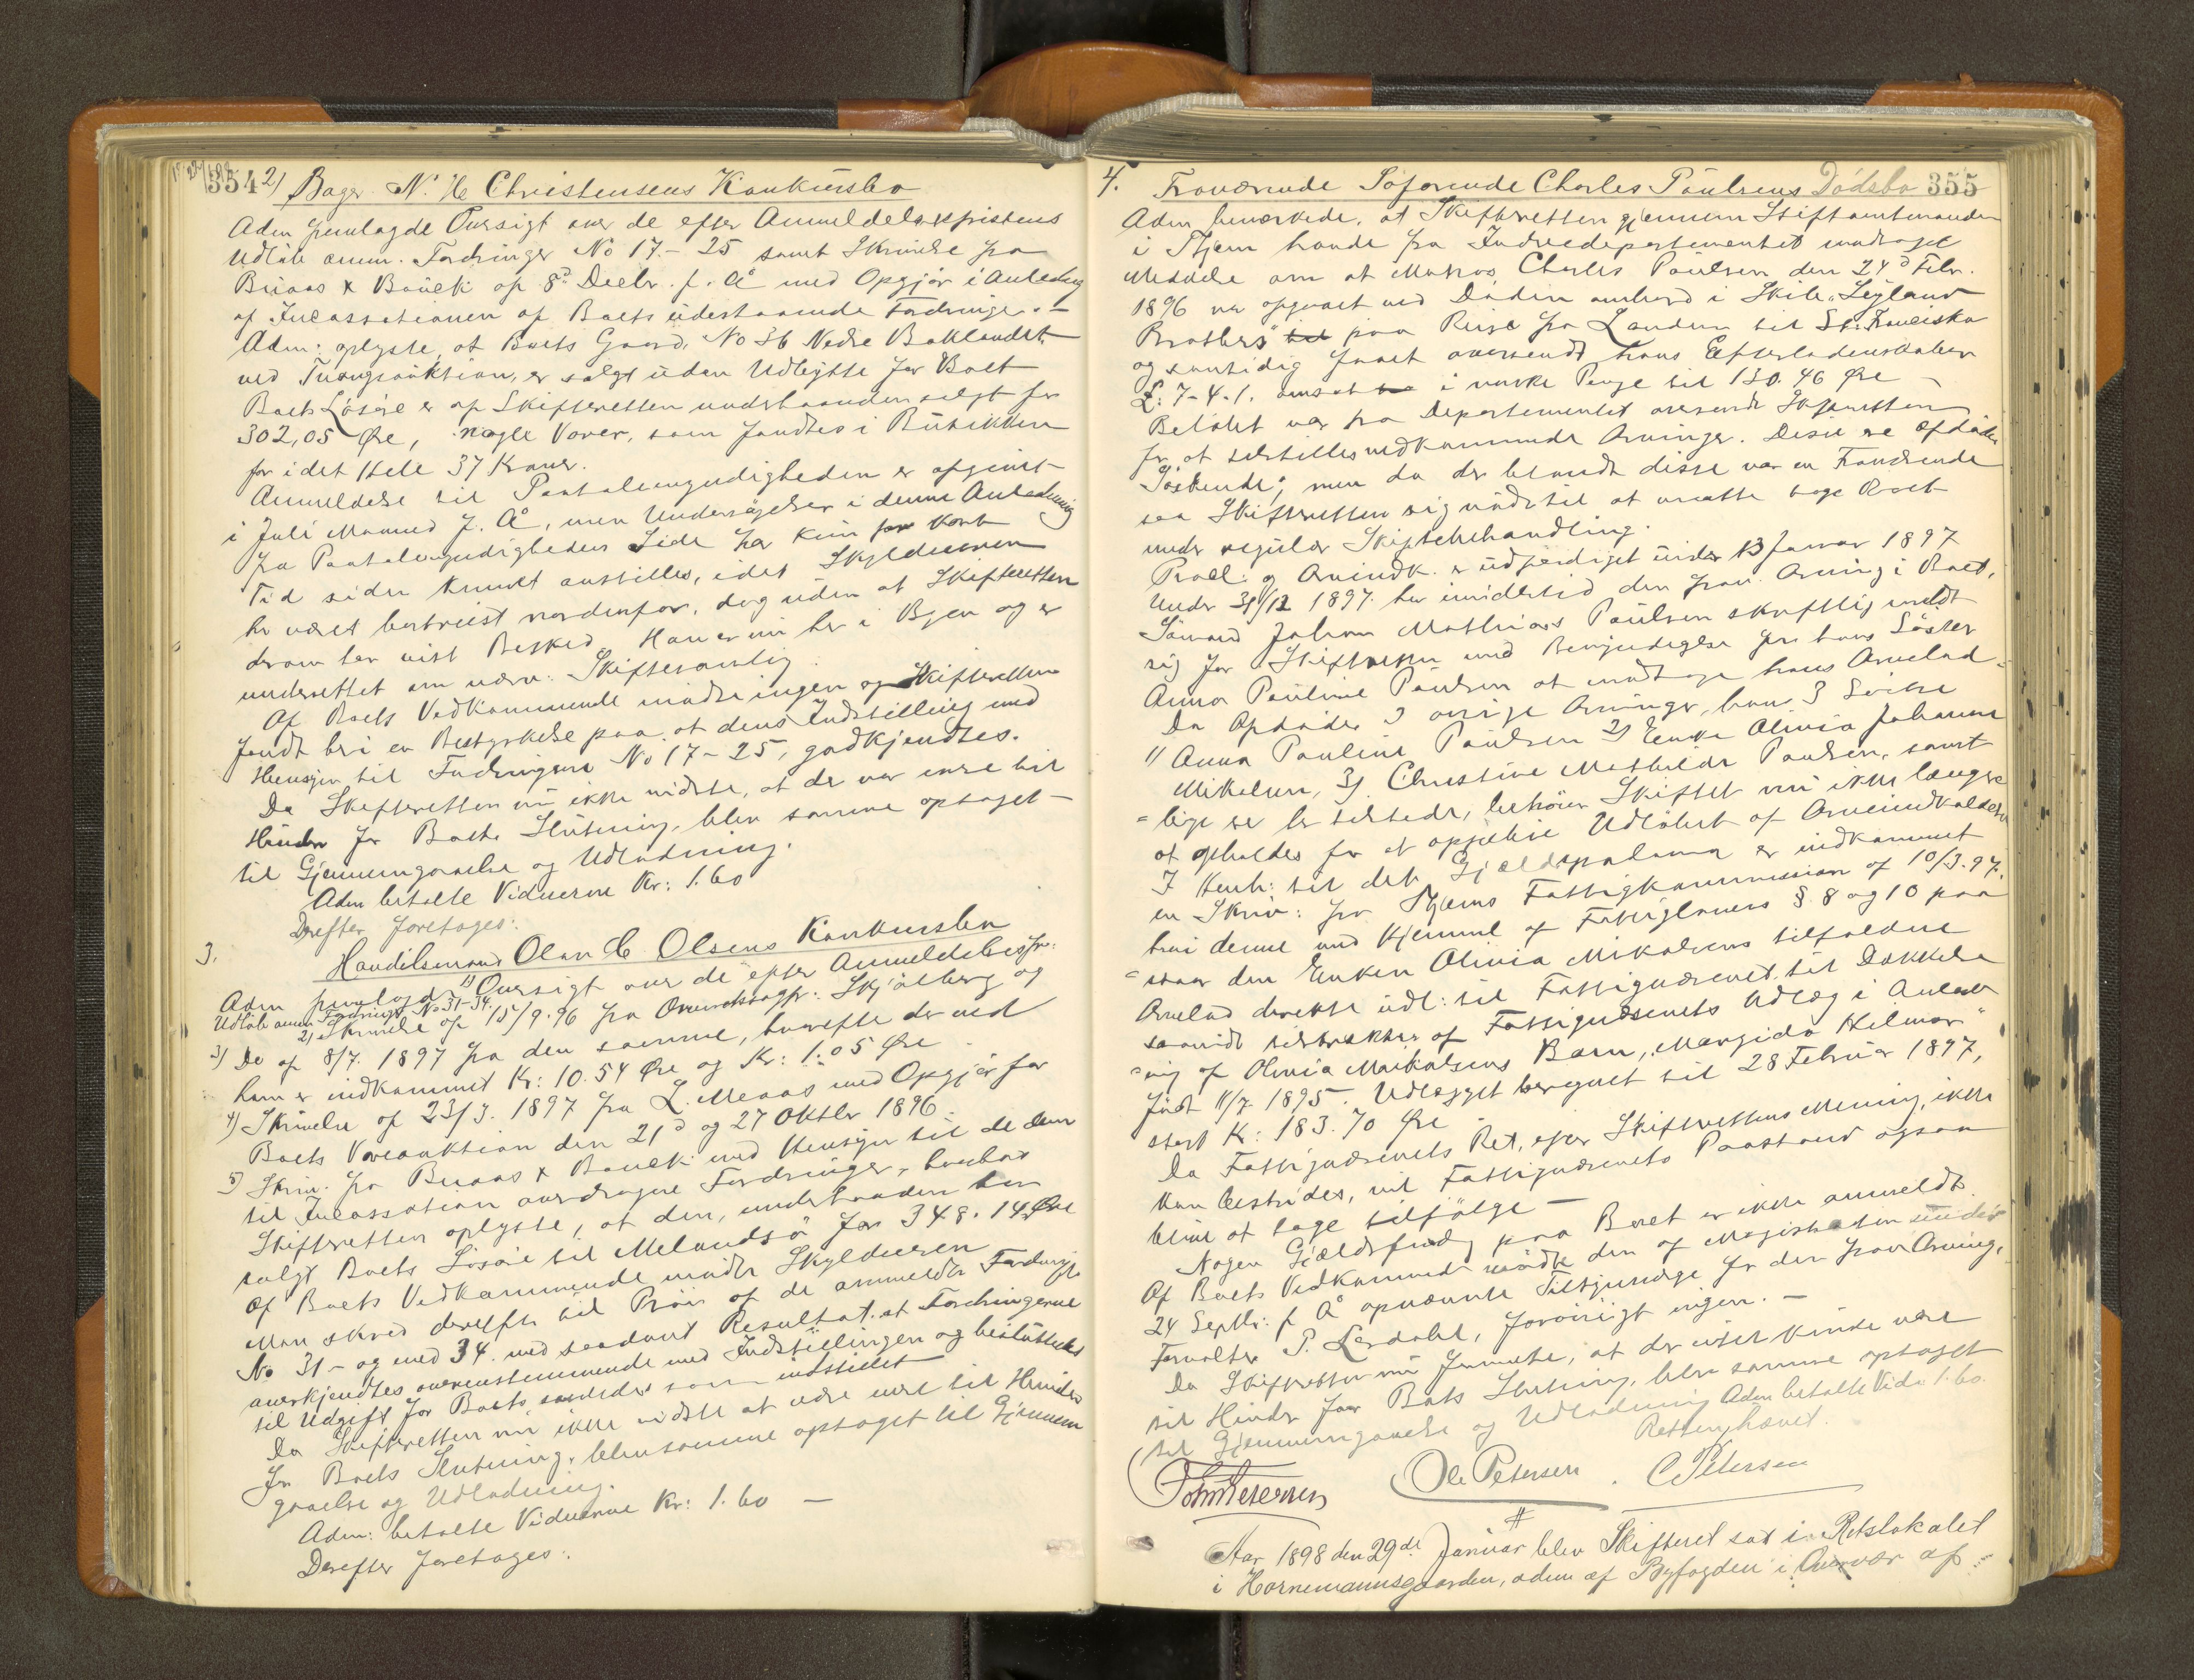 354
2) Bager N. H. Christensens Konkursbo
Adm fremlagde Oversigt over de efter Anmeldelsesfristens
Udløb anm. Fordringer No 17 - 25 samt Skrivelse fra
Buaas & Bauck af 8d Decbr. f. Å med Opgjør i Anledning
af Incassationen af Boets udestaaende Fordringer. -
Adm: oplyste, at Boets Gaard, No 36 Nedre Baklandet
ved Tvangsauktion, er solgt uden Udbytte for Boet
Boets Løsøre er af Skifteretten underhaanden solgt for
302,05 Øre, nogle Varer, som fandtes i Butikken
for i det Hele 37 Kroner.
Anmeldelse til Paatalemyndigheden er afgivet
i Juli Maaned f. Å, men Undersøgelser i denne Anledning
fra Paatalemyndighedens Side har kun for kort
Tid siden kunnet anstilles, idet Skyldneren
har været bortreist nordenfor, dog uden at Skifteretten
derom har vist Besked. Han er nu her i Byen og er
underrettet om nærv. Skiftesamling.
Af Boets Vedkommende mødte ingen og Skifteretten
fandt heri en Bestyrkelse paa, at dens Indstilling med
Hensyn til Fordringerne No 17 - 25, godkjendtes.
Da Skifteretten nu ikke vidste, at der var mere til
Hinder for Boets Slutning, blev samme optaget
til Gjennemgaaelse og Udlodning.
Adm betalte Vidnerne Kr: 1.60
Derefter foretoges:
3.
Handelsmand Olav C Olsens Konkursbo
Adm fremlagde 1) Oversigt over de efter Anmeldelsesfr:
Udløb anm Fordringer No 31-34.
2) Skrivelse af 15/9.96 fra Overretssagfr: Skjølberg og
3) Do af 8/7. 1897 fra den samme, hvorefter der ved
ham er indkommet Kr: 10.54 Øre og Kr: 1.05 Øre
4) Skrivelse af 23/3. 1897 fra L. Meaas med Opgjør for
Boets Vareauktion den 21d og 27 Oktbr 1896.
5) Skriv. fra Buaas & Bauck med Hensyn til de dem
til Incassation overdragne Fordringer, hvorhos
Skifteretten oplyste, at den, underhaanden har
solgt Boets Løsøre til Melandsø for 348.14 Øre
Af Boets Vedkommende mødte Skyldneren
Man skred derefter til Prøve af de anmeldte Fordringer
No 31 - og med 34. med saadant Resultat, at Fordringerne
anerkjendtes overensstemmende med Indstillingen og besluttedes
til Udgift for Boets saaledes som indstillet
Da Skifteretten nu ikke vidste at være mere til Hinder
for Boets Slutning, blev samme optaget til Gjennem
gaaelse og Udlodning.
Adm: betalte Vidnerne Kr: 1.60 -
Derefter foretoges:
355
4. Fraværende Søfarende Charles Paulsens Dødsbo
Adm bemærkede, at Skifteretten gjennem Stiftamtmanden
i Thjem havde fra Indredepartementet modtaget
Meddelelse om at Matros Charles Paulsen den 24d Febr.
1896 var afgaaet ved Døden ombord i Skib "Leyland
Brothers" til paa Reise fra London til St. Francisko
og samtidig faaet oversendt hans Efterladenskaber
£: 7-4-1. omsat i norske Penge til 130.46 Øre -
Beløbet var fra Departementet oversendt Skifteretten
for at tilstilles vedkommende Arvinger. Disse er Afdødes
Søskende; men da der blandt disse var en Fraværende
saa Skifteretten sig nødt til at maatte tage Boet
under regulær Skiftebehandling.
Procl: og Arveindk. er udfærdiget under 13 Januar 1897
Under 31/12 1897. har imidlertid den frav. Arving i Boet,
Sømand Johan Mathias Paulsen skriftlig meldt
sig for Skifteretten med Bemyndigelse for hans Søster
Anna Pauline Paulsen at modtage hans Arvelod -
Da Afdødes 3 øvrige Arvinger, hans 3 Søstre
1) Anna Pauline Paulsen 2) Enke Olivia Johanne
Mikalsen, 3) Christine Mathilde Paulsen, samt-
-lige er her tilstede, behøver Skiftet nu ikke længere
at opholdes for at oppebie Udløbet af Arveindkaldelsen
I Henh: til deb. Gjældsproklama er indkommet
en Skriv: fra Thjems Fattigkommission af 10/3.97.
hvori denne med Hjemmel af Fattiglovens § 8 og 10 paa-
-staar den Enken Olivia Mikalsens tilfaldne
Arvelod derekte udl: til Fattigvæsenet til Dækkelse
saavidt tilstrækker af Fattigvæsenets Udlæg i Anled-
-ning af Olivia Mikalsens Barn, "Margido Hilmar"
født 11/7 1895. Udlægget beregnet til 28 Februar 1897,
stort Kr: 183.70 Øre -
Da Fattigvæsenets Ret, efter Skifterettens Mening, ikke
kan bestrides, vil Fattigvæsenets Paastand ogsaa
blive at tage tilfølge -
Nogen Gjældsfordr paa Boet er ikke anmeldt.
Af Boets Vedkommende mødte den af Magistraten under
24 Septbr: f Å opnævnte Tilsynsværge for den frav Arving,
Forvalter P. Lerdahl, forøvrigt ingen. -
Da Skifteretten nu formente, at der intet kunde være
til Hinder for Boets Slutning, blev samme optaget
til Gjennemgaaelse og Udlodning Adm betalte Vidn 1.60.
Retten hævet.
Ole Petersen . C Petersen
#
Aar 1898 den 29de Januar blev Skifteret sat i Retslokalet
i Hornemannsgaarden, adm af Byfogden i Overvær af